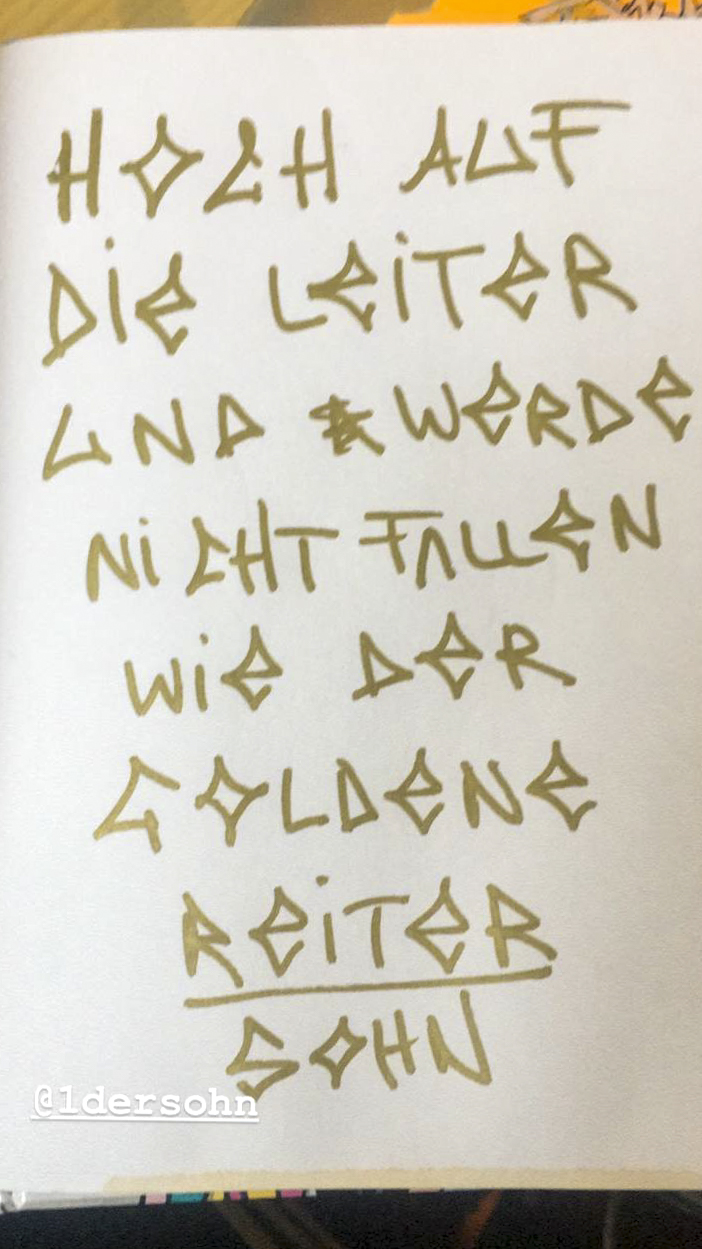 HOCH AUF
DiE LEiTER
UND WERDE
NiCHT FALLEN
WiE DER
GOLDENE
REiTER
SOHN
@1dersohn